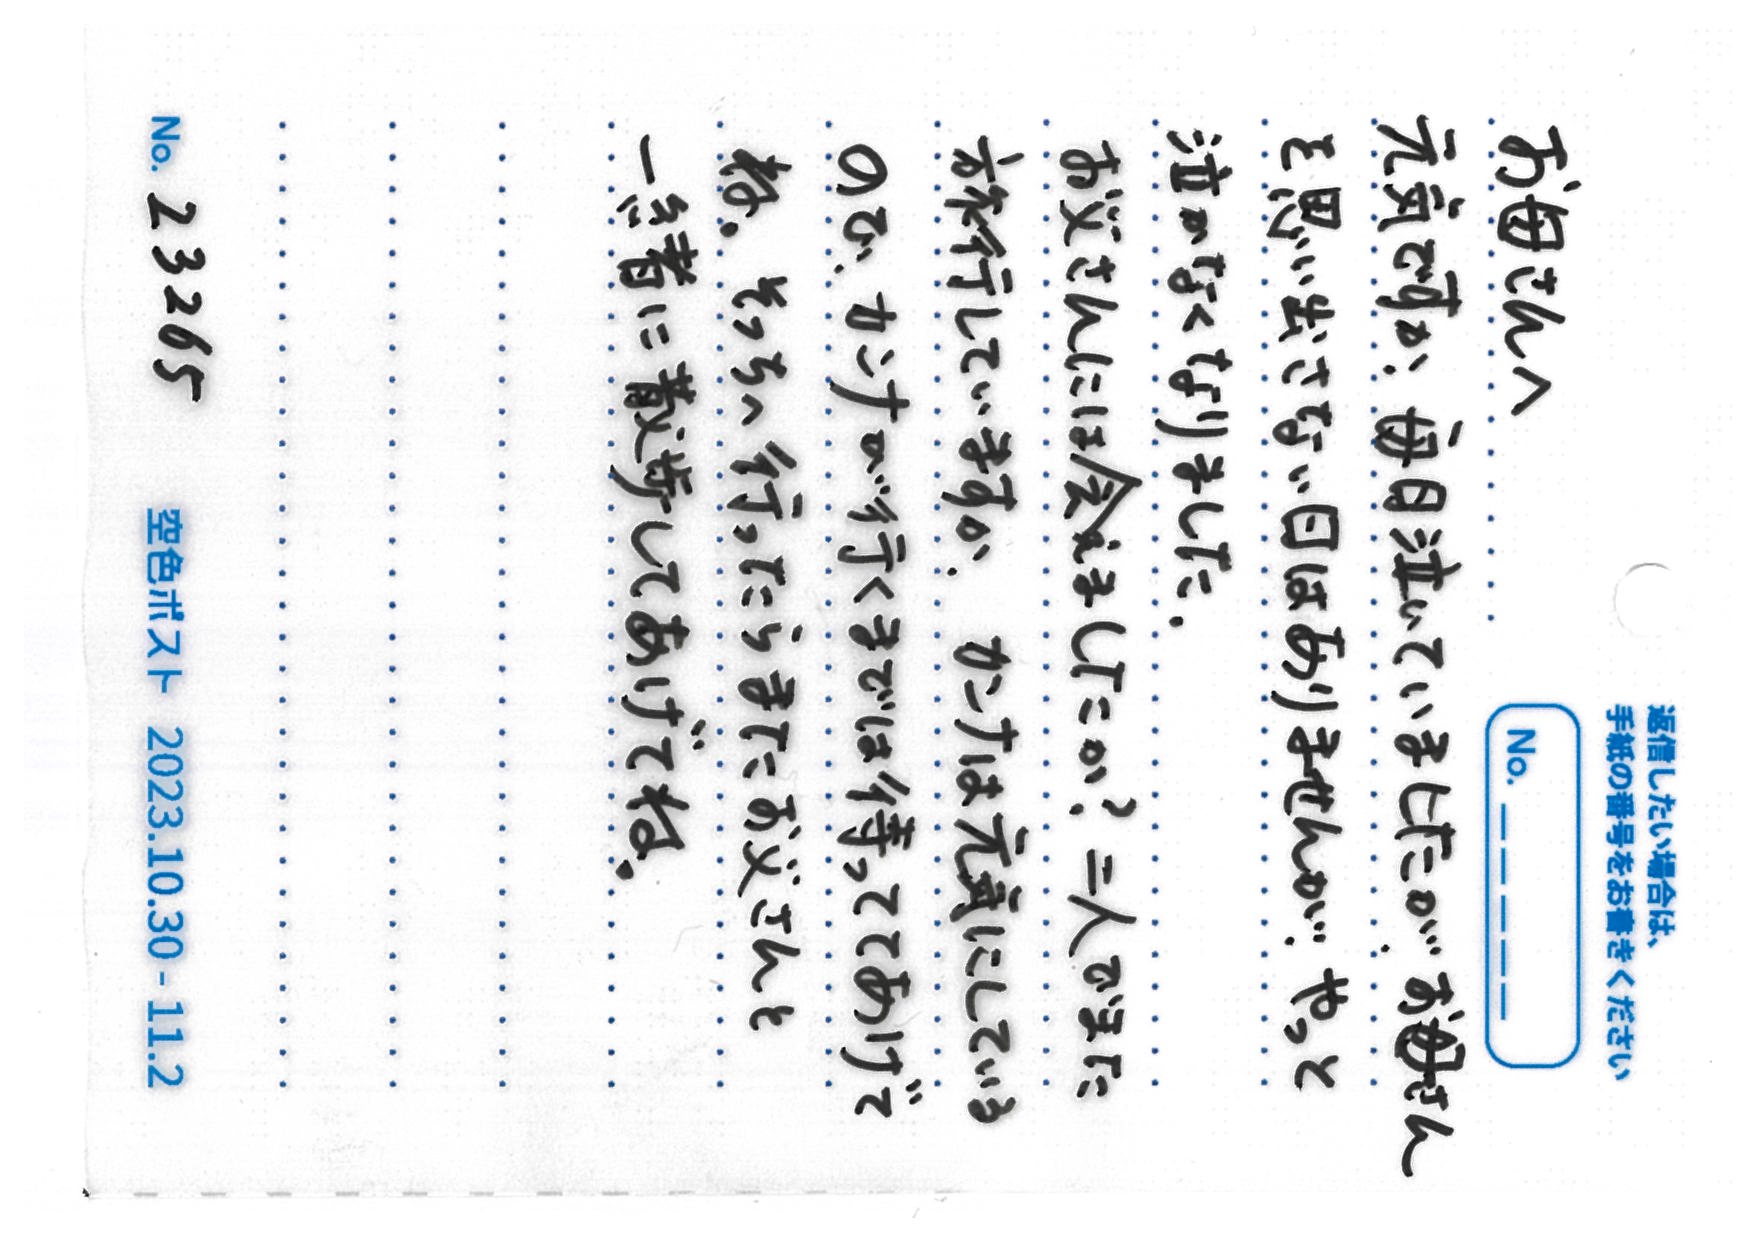 返信したい場合は、
手紙の番号をお書きください
No. _ _ _ _ _
お母さんへ
元気ですか、毎日泣いていましたが、お母さん
を思い出さない日はありませんが、やっと
泣かなくなりました。
お父さんには会えましたか?二人でまた
旅行していますか、 カンナは元気にしている
ので、カンナが行くまでは待っててあげて
ね。そっちへ行ったらまたお父さんと
一緒に散歩してあげてね。
No. 23265
空色ポスト 2023.10.30 - 11.2